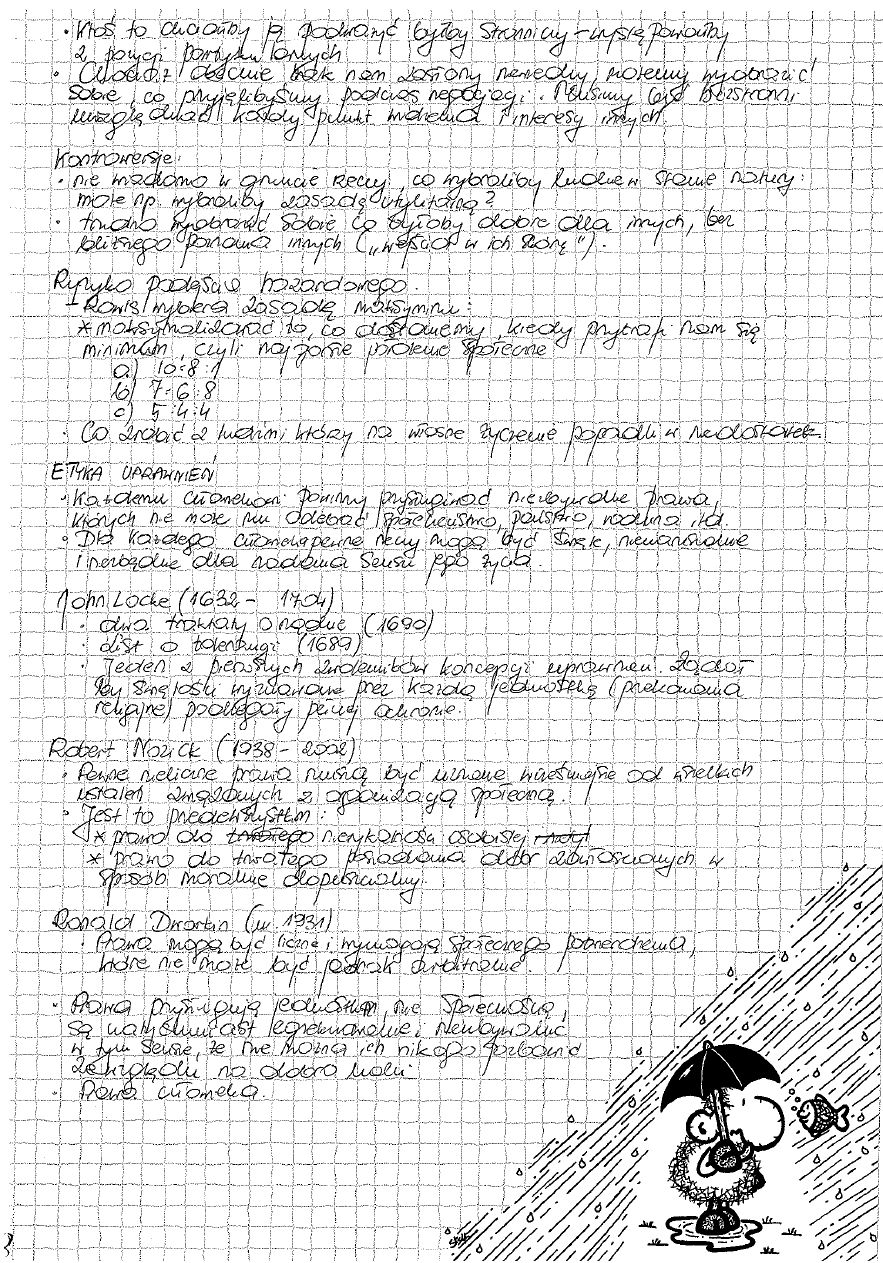 • Ktoś to chciałby ją podważyć byłby stronniczy – występowałby
z pozycji partykularnych
• Chociaż obecnie brak nam zasłony niewiedzy, możemy wyobrazić
sobie, co przyjęlibyśmy podczas negocjacji. Musimy być bezstronni
uwzględniać każdy punkt widzenia i interesy innych.
Kontrowersje:
• nie wiadomo w gruncie rzeczy, co wybraliby ludzie w stanie natury:
może np. wybraliby zasadę utylitarną?
• trudno wyobrazić sobie co byłoby dobre dla innych, bez
bliższego poznania innych ("wejścia w ich skórę").
Ryzyko podejścia hazardowego.
– Rawls wybiera zasadę maksyminu:
* maksymalizować to, co dostaniemy, kiedy przytrafi nam się
minimum, czyli najgorsze położenie społeczne
a) 10:8:1
b) 7:6:8
c) 5:4:4
• Co zrobić z ludźmi, którzy na własne życzenie popadli w niedostatek.
ETYKA UPRAWNIEŃ
• Każdemu człowiekowi powinny przysługiwać niezbywalne prawa,
których nie może mu odebrać społeczeństwo, państwo, rodzina itd.
• Dla każdego człowieka pewne rzeczy mogą być święte, nienaruszalne
i niezbędne dla nadania sensu jego życia.
John Locke (1632 – 1704)
• dwa traktaty o rządzie (1690)
• List o tolerancji (1689)
• Jeden z pierwszych zwolenników koncepcji uprawnień. Żądał
by świętości wyznawane przez każdą jednostkę (przekonania
religijne) podlegały pełnej ochronie.
Robert Nozick (1938 – 2002)
• Pewne nieliczne prawa muszą być uznane wcześniejsze od wszelkich
ustaleń związanych z organizacją społeczną.
• Jest to przede wszystkim:
* prawo do trwałego nietykalności osobistej
* prawo do trwałego posiadania dóbr zawłaszczonych w
sposób moralnie dopuszczalny.
Ronald Dworkin (ur. 1931)
• Prawa mogą być liczne i wymagają społecznego potwierdzenia,
które nie może być jednak arbitralne.
• Prawa przysługują jednostkom, nie społecznością,
są natomiast egzekwowalne i niezbywalne
w tym sensie, że nie można ich nikogo pozbawić
ze względu na dobro ludzi.
• Prawa człowieka.